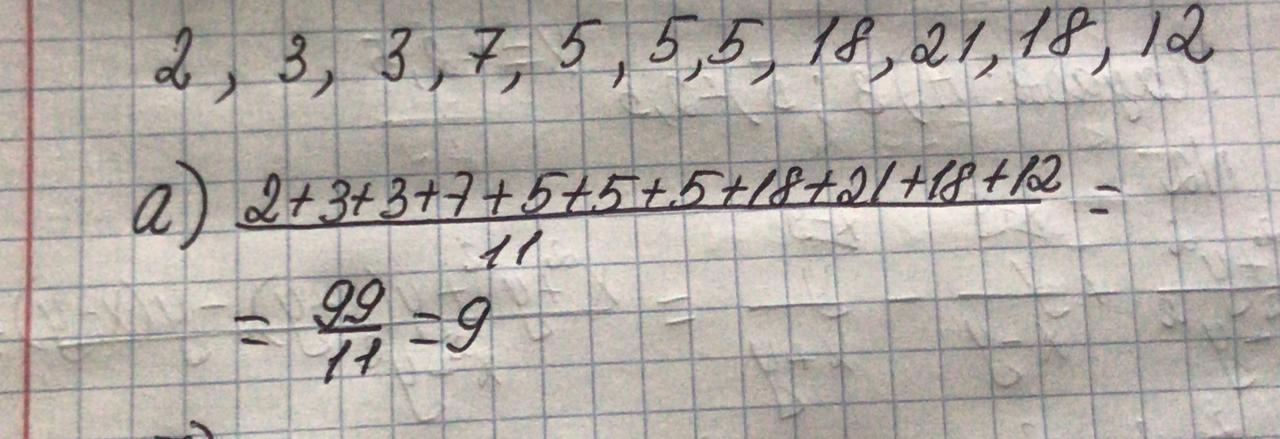 2, 3, 3, 7, 5, 5, 5, 18, 21, 18, 12
а) 2+3+3+7+5+5+5+18+21+18+12 =
11
= 99/11 = 9